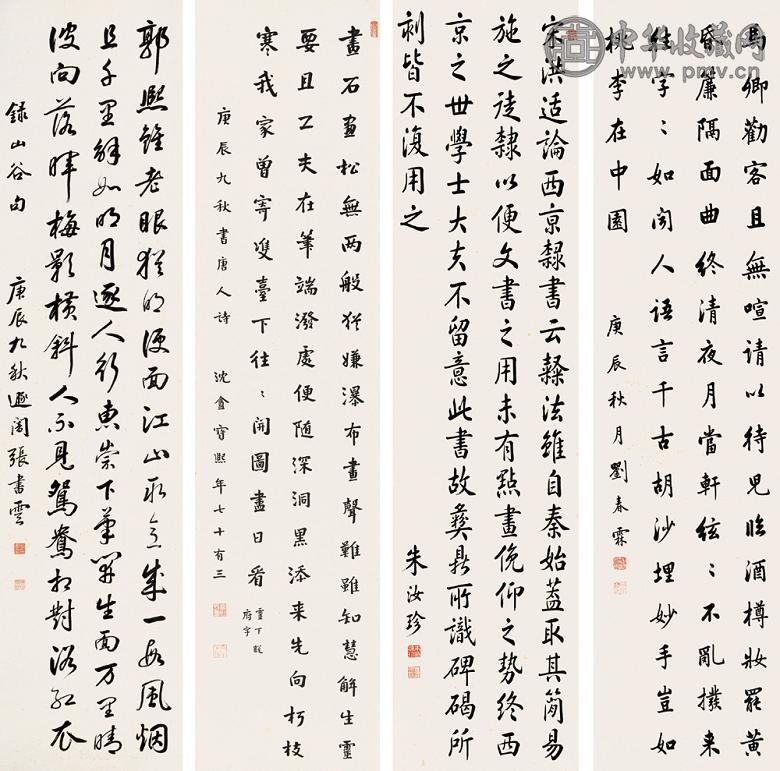 馬卿勸客且無喧請以待兒臨酒樽妝罷黃
昏簾隔面曲終清夜月當軒絃〻不亂撥來
往字〻如聞人語言千古胡沙埋妙手豈如
桃李在中園
庚辰秋月劉春霖
宋洪适論西京隸書云隸法雖自秦始蓋取其簡易
施之徒隸以便文書之用未有點畫俛仰之勢終西
京之世學士大夫不留意此書故彝鼎所識碑碣所
刻皆不復用之
朱汝珍
畫石畫松無兩般猶嫌瀑布畫聲難雖知慧解生靈
要且工夫在筆端潑處便隨深洞黑添來先向朽枝
寒我家曾寄雙臺下往〻開圖盡日看
靈下脫
府字
庚辰九秋書唐人詩
沈盦寶熙年七十有三
郭熙雖老眼猶明便面江山取意成一段風烟
且千里解如明月逐人行惠崇下筆開生面万里晴
波向落暉梅影橫斜人不見鴛鴦相對浴紅衣
錄山谷句
庚辰九秋遯閣張書雲
中华收藏网
www.pmv.cn